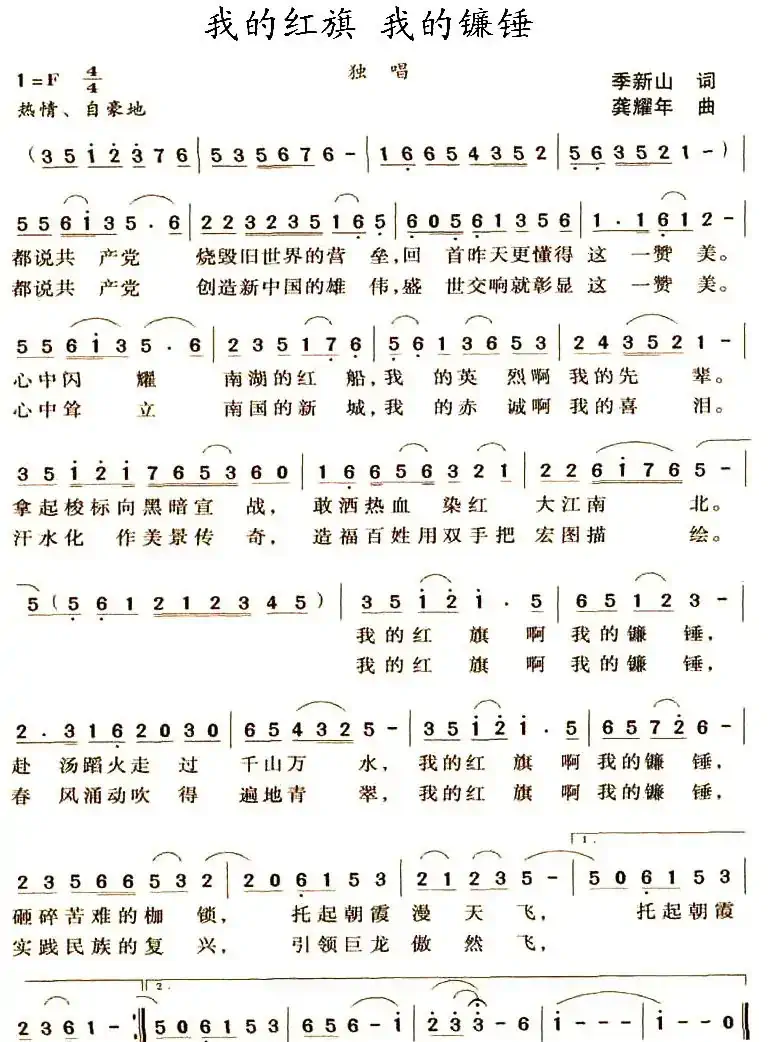 我的红旗 我的镰锤
1=F 4/4 独唱 季新山 词
热情、自豪地 龚耀年 曲
(3 5 1 2 3 7 6 | 5 3 5 6 7 6 - | 1 6 6 5 4 3 5 2 | 5 6 3 5 2 1 -)|
5 5 6 1 3 5 . 6 | 2 2 3 2 3 5 1 6 5 | 6 0 5 6 1 3 5 6 | 1 . 1 6 1 2 - |
都说共 产党 烧毁旧世界的营 垒,回 首昨天更懂得 这 一赞 美。
都说共 产党 创造新中国的雄 伟,盛 世交响就彰显 这 一赞 美。
5 5 6 1 3 5 . 6 | 2 3 5 1 7 6 | 5 6 1 3 6 5 3 | 2 4 3 5 2 1 - |
心中闪 耀 南湖的红 船,我 的英 烈啊 我的先 辈。
心中耸 立 南国的新 城,我 的赤 诚啊 我的喜 泪。
3 5 1 2 1 7 6 5 3 6 0 | 1 6 6 5 6 3 2 1 | 2 2 6 1 7 6 5 - |
拿起梭标向黑暗宣 战, 敢洒热血 染红 大江南 北。
汗水化 作美景传 奇, 造福百姓用双手把 宏图描 绘。
5 (5 6 1 2 1 2 3 4 5) | 3 5 1 2 1 . 5 | 6 5 1 2 3 - |
我的红 旗 啊 我的镰 锤,
我的红 旗 啊 我的镰 锤,
2 . 3 1 6 2 0 3 0 | 6 5 4 3 2 5 - | 3 5 1 2 1 . 5 | 6 5 7 2 6 - |
赴 汤蹈火走 过 千山万 水, 我的红 旗 啊 我的镰 锤,
春 风涌动吹 得 遍地青 翠, 我的红 旗 啊 我的镰 锤,
1.
2 3 5 6 6 5 3 2 | 2 0 6 1 5 3 | 2 1 2 3 5 - | 5 0 6 1 5 3 |
砸碎苦难的枷 锁, 托起朝霞 漫 天 飞, 托起朝霞
实践民族的复 兴, 引领巨龙 傲 然 飞,
2.
2 3 6 1 1 - :| 5 0 6 1 5 3 | 6 5 6 - 1 | 2 3 3 - 6 | 1 - - - | 1 - - 0 ‖